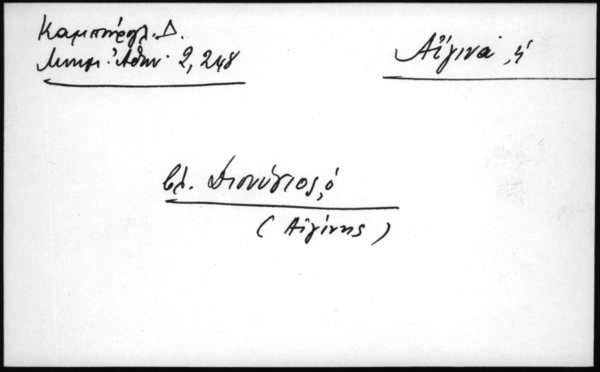 Καμπούρογλ. Δ.
Μνημ. Ἀθην. 2, 248
Αἴγινα, ἡ
βλ. Διονύσιος, ὁ
(Αἰγίνης)